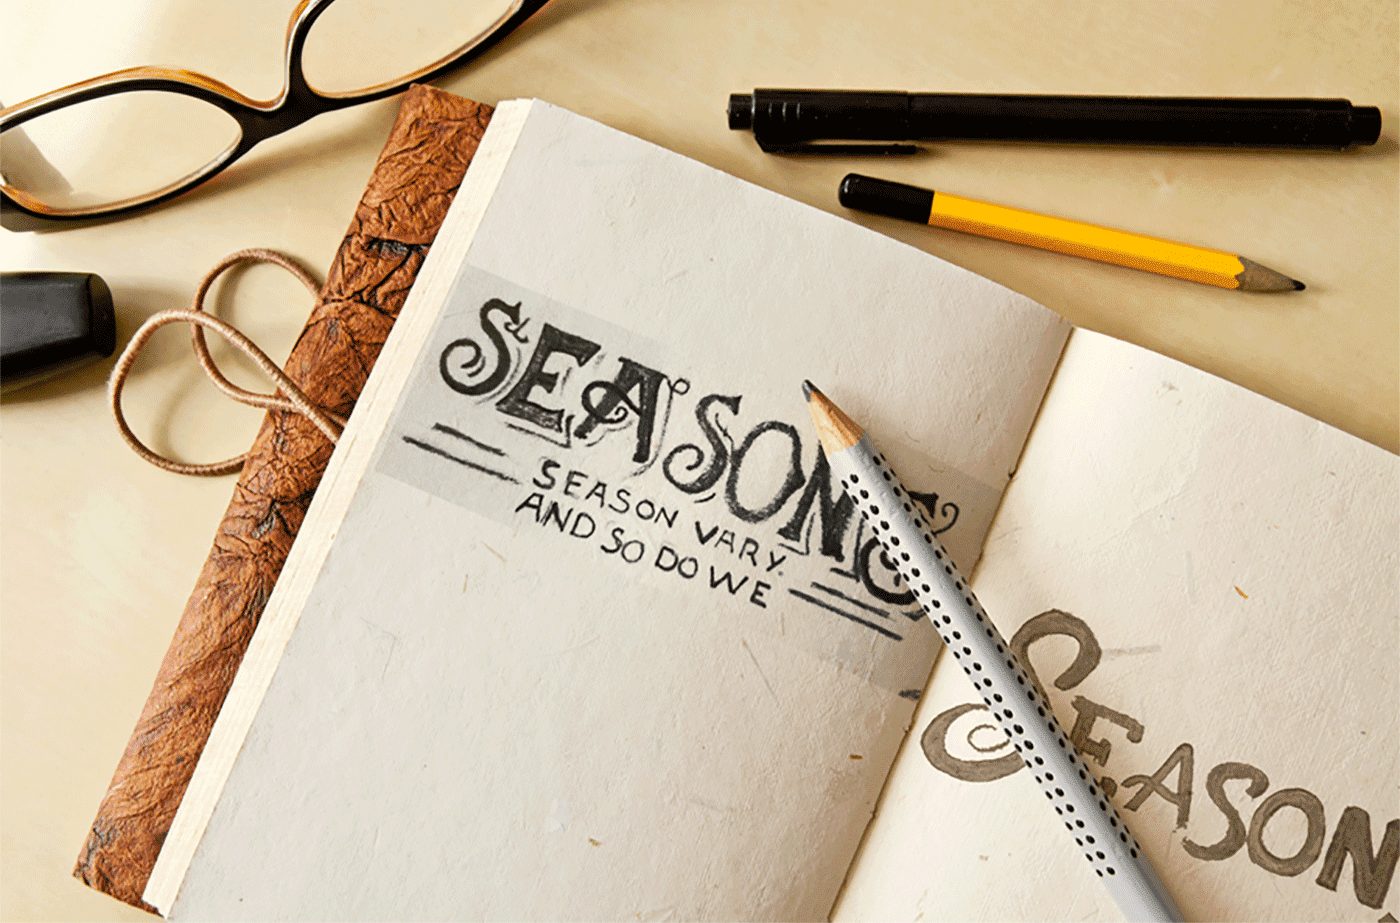 SEASONS
SEASON VARY.
AND SO DO WE
SEASON